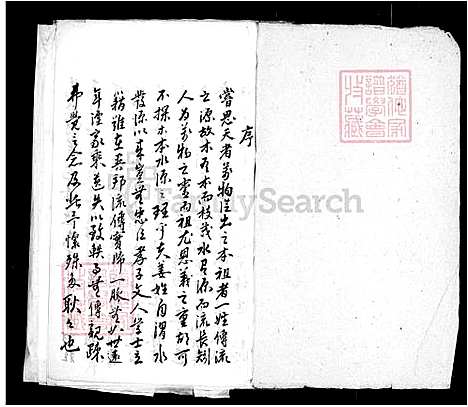 序
嘗思天者萬物從出之本祖者一姓傳流
之源故木有本而枝茂水有源而流長刻
人為萬物之靈而祖尤恩義之重胡可
不探木本水源之理乎夫姜姓自渭水
發源以來豈無忠臣孝子文人學士之
籍雖在異邦流傳實師一脈第世遠
年湮家乘遺失以致軼事無傳親疎
弗覺之念及此予懷殊多耿々也
FamilySearch